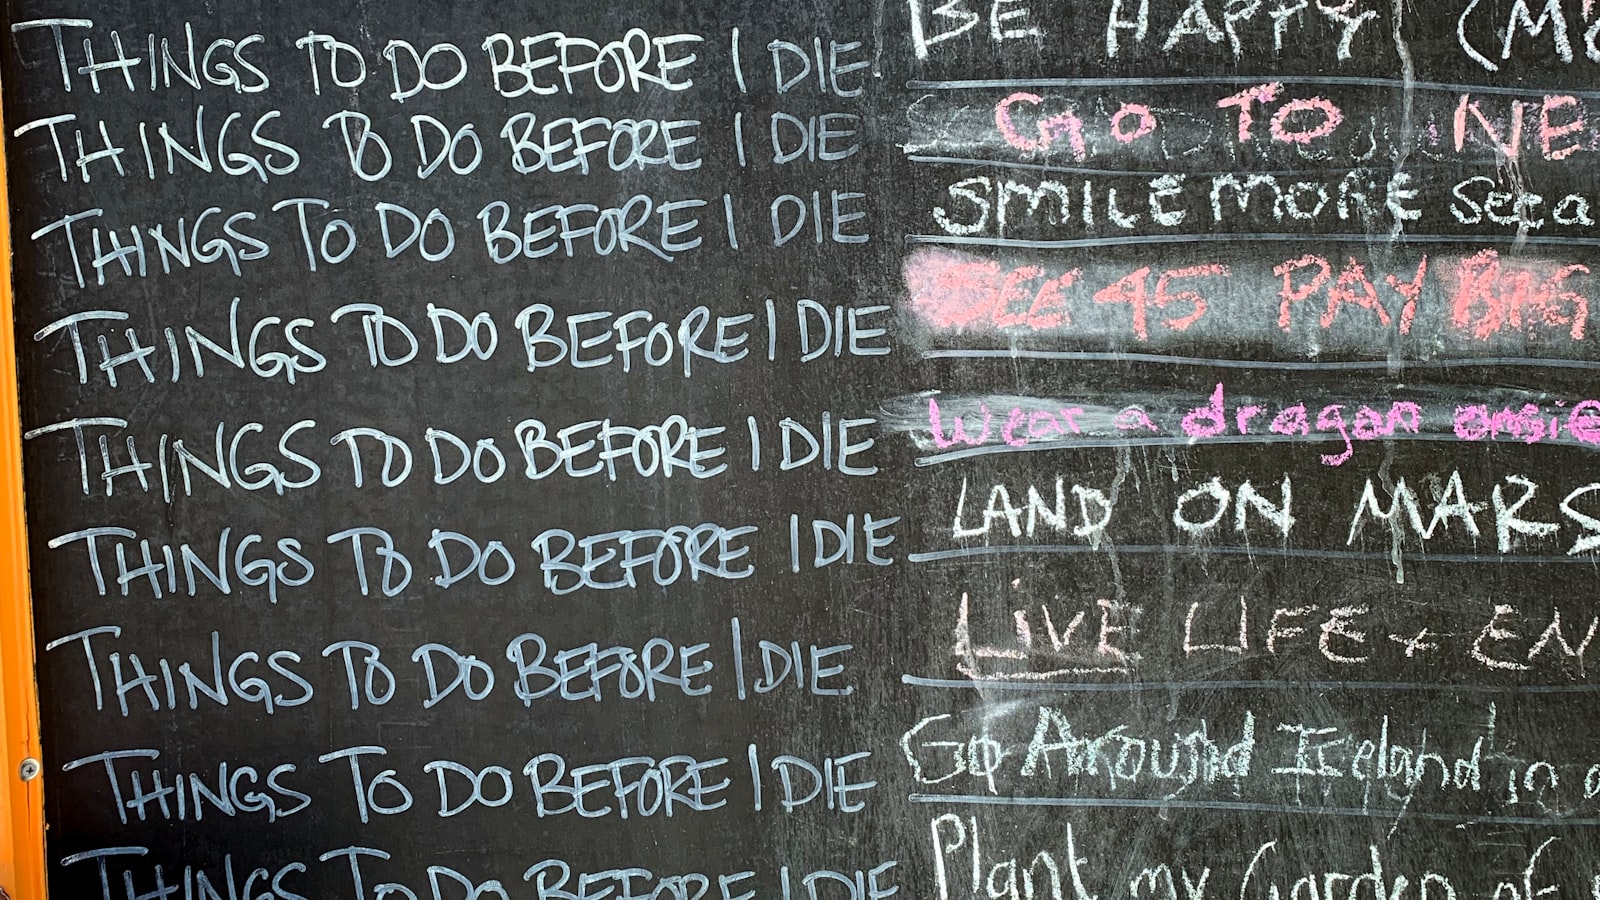 THINGS TO DO BEFORE I DIE BE HAPPY
THINGS TO DO BEFORE I DIE GO TO NE
THINGS TO DO BEFORE I DIE SMILE MORE See a
THINGS TO DO BEFORE I DIE SEE 45 PAY BIG
THINGS TO DO BEFORE I DIE Wear a dragon onsie
THINGS TO DO BEFORE I DIE LAND ON MARS
THINGS TO DO BEFORE I DIE LIVE LIFE + EN
THINGS TO DO BEFORE I DIE Go Around Ireland in a
THINGS TO DO BEFORE I DIE Plant my Garden of